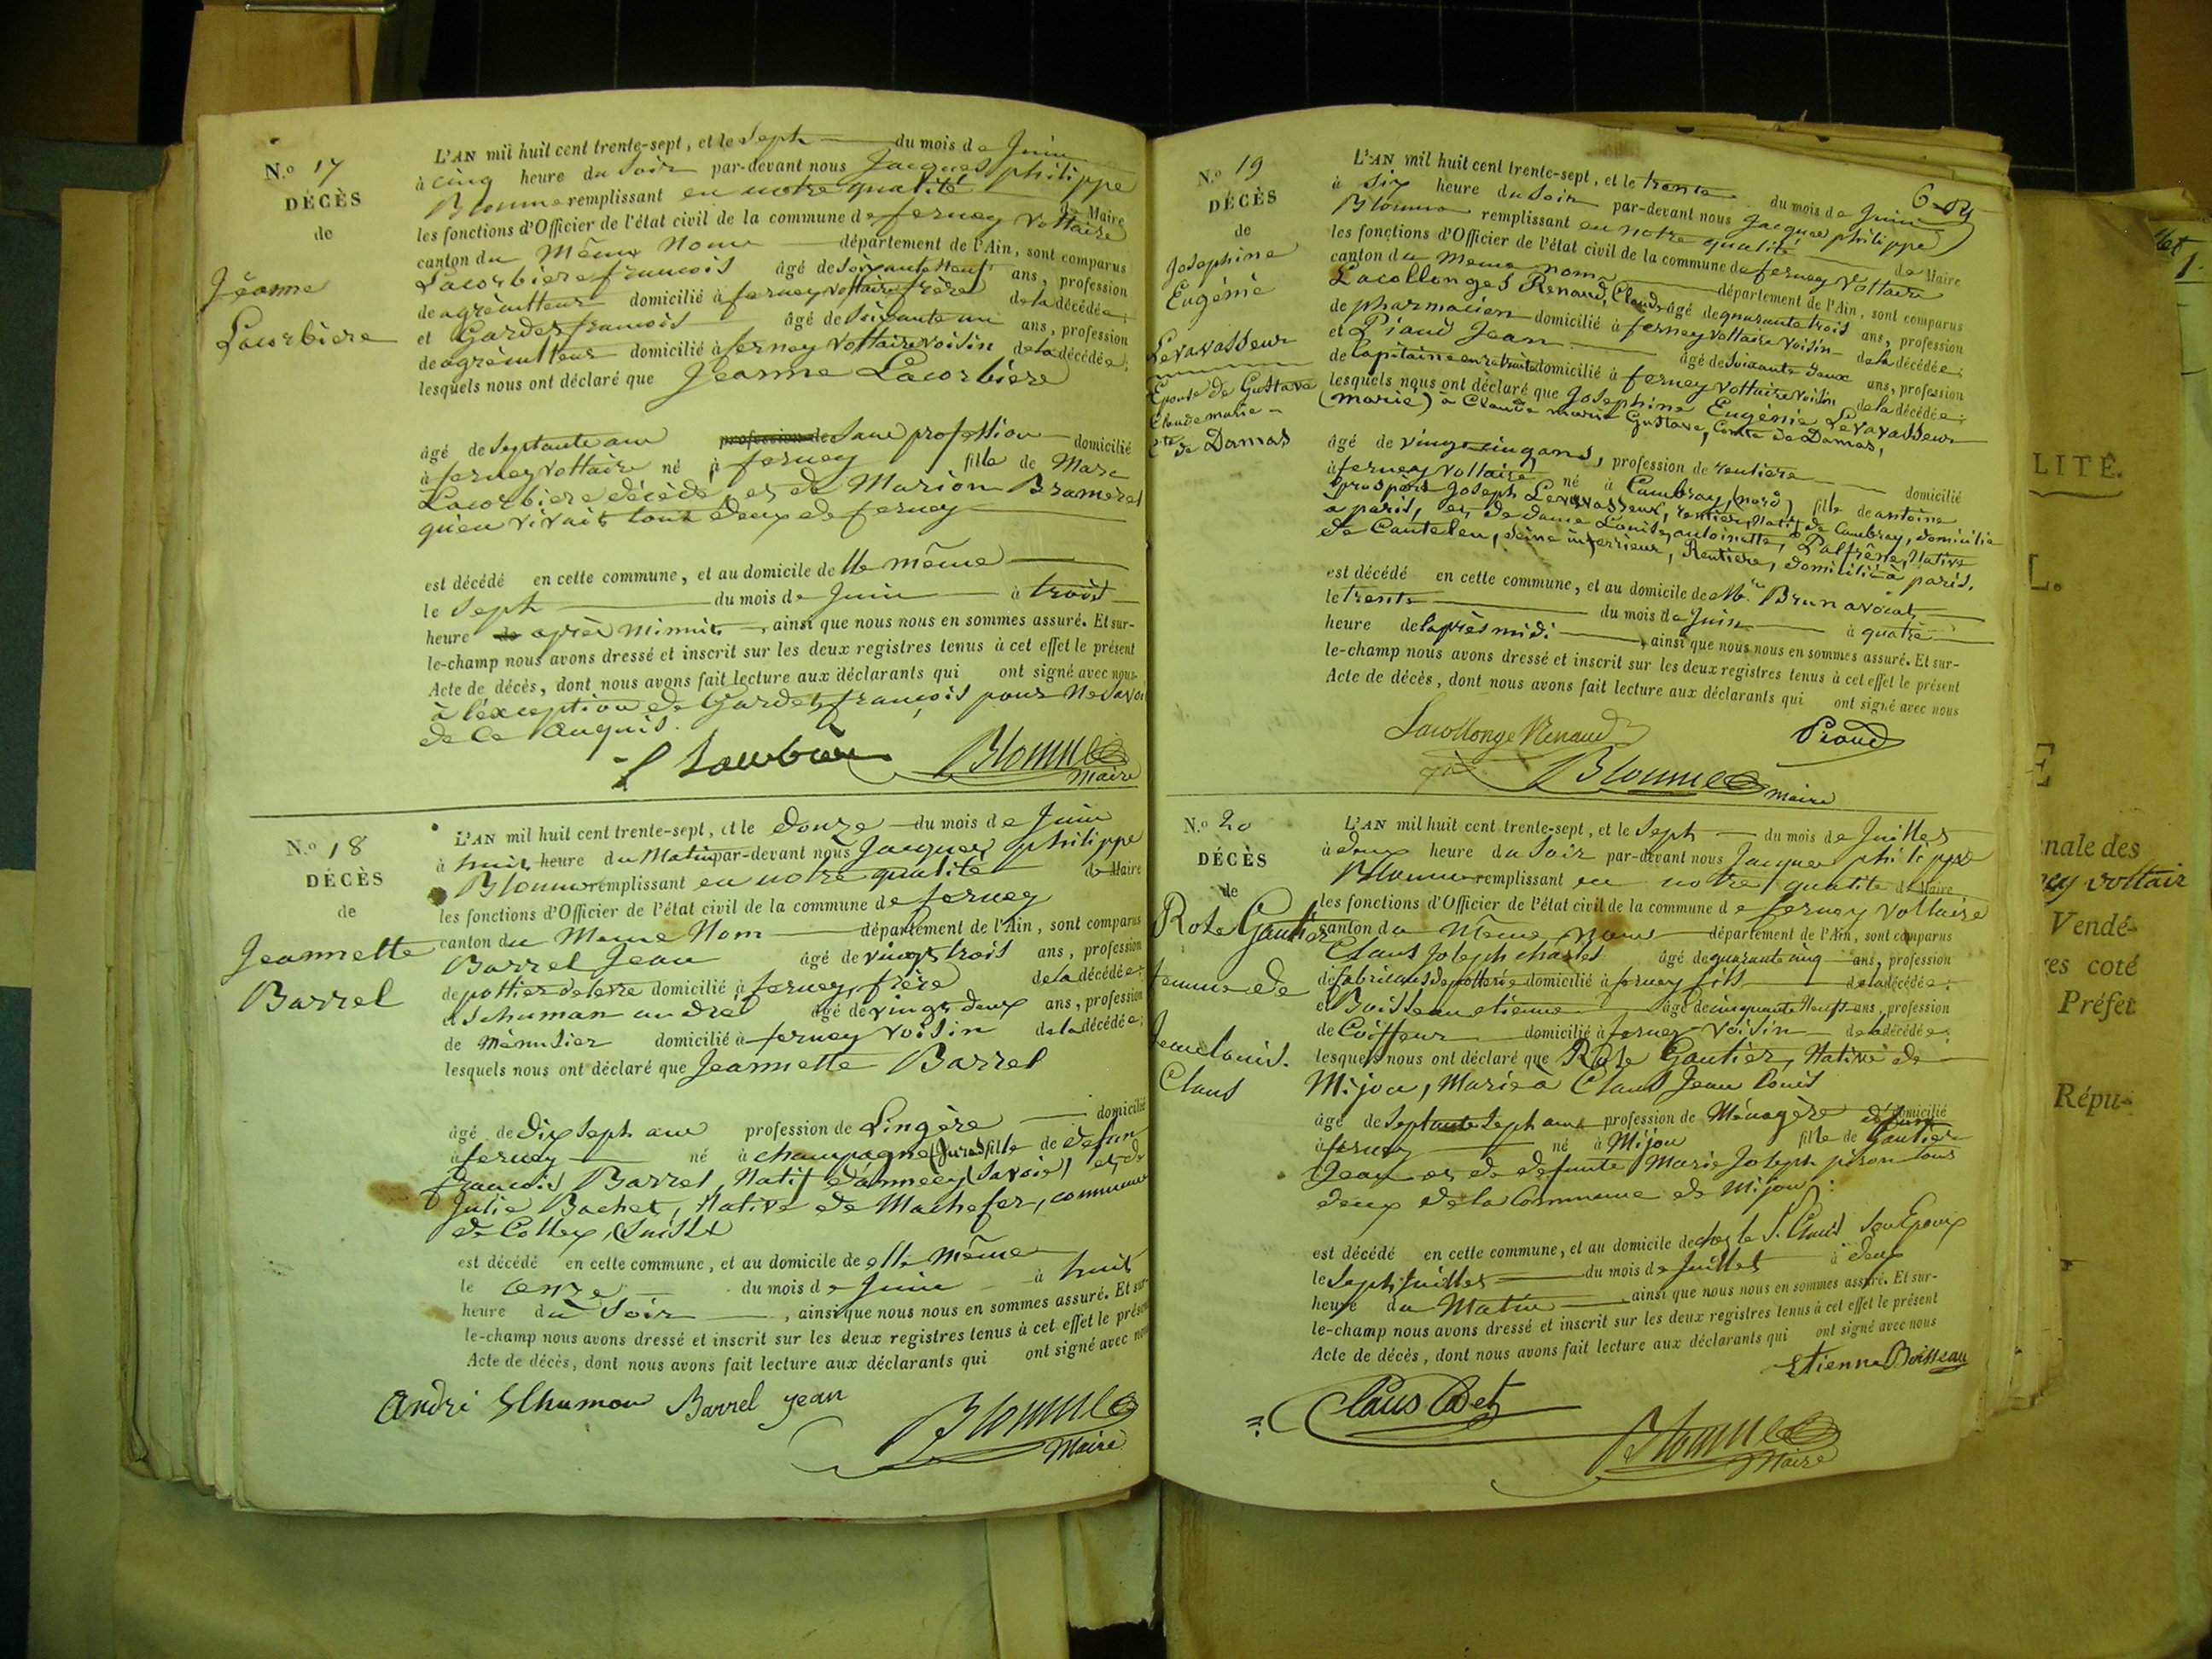 N.o 17
DÉCÈS
de
Jeanne
Lacorbière
L'AN mil huit cent trente-sept, et le Sept du mois de Juin
à cinq heure du Soir par-devant nous Jacques philippe
Blonme remplissant en notre qualité de Maire
les fonctions d'Officier de l'état civil de la commune de ferney Voltaire
canton du Même Nom département de l'Ain, sont comparus
Lacorbiere francois âgé de Soixante Neuf ans, profession
de agriculteur domicilié à ferney Voltaire frère de la décédée;
et Gardet francois âgé de Soixante un ans, profession
de agriculteur domicilié à ferney Voltaire voisin de la décédée;
lesquels nous ont déclaré que Jeanne Lacorbiere
âgé de Septante ans profession de Sans profession domicilié
à ferney Voltaire né à ferney fille de Marc
Lacorbiere décédé, et de Marion Brameret
qu'en vivait tous deux de ferney
est décédé en cette commune, et au domicile de elle même
le Sept du mois de Juin à trois
heure de après Minuit, ainsi que nous nous en sommes assuré. Et sur-
le-champ nous avons dressé et inscrit sur les deux registres tenus à cet effet le présent
Acte de décès, dont nous avons fait lecture aux déclarants qui ont signé avec nous
à l'éxception de Gardet francois pour Ne savoir
de ce enquis.
Blonme
Maire
N.o 18
DÉCÈS
de
Jeannette
Barrel
L'AN mil huit cent trente-sept, et le Douze du mois de Juin
à huit heure du Matin par-devant nous Jacques philippe
Blonme remplissant en notre qualité de Maire
les fonctions d'Officier de l'état civil de la commune de ferney
canton du Meme Nom département de l'Ain, sont comparus
Barrel Jean âgé de vingt trois ans, profession
de pottier de terre domicilié à ferney, frère de la décédée;
et Schuman andré âgé de vingt deux ans, profession
de Ménusier domicilié à ferney voisin de la décédée;
lesquels nous ont déclaré que Jeannette Barrel
âgé de Dix Sept ans profession de Lingère domicilié
à ferney né à champagne (Jura) fille de defun
francois Barrel, Natif d'annecy (Savoie) et de
Julie Bachet, Native de Machefer, commune
de Collex, Suisse
est décédé en cette commune, et au domicile de elle même
le onze du mois de Juin à huit
heure du Soir, ainsi que nous nous en sommes assuré. Et sur-
le-champ nous avons dressé et inscrit sur les deux registres tenus à cet effet le présent
Acte de décès, dont nous avons fait lecture aux déclarants qui ont signé avec nous
andré Schuman Barrel jean
Blonme
Maire
N.o 19
DÉCÈS
de
Josephine
Eugénie
Levavasseur
Epouse de Gustave
Claude marie
Cte de Damas
L'AN mil huit cent trente-sept, et le trente du mois de Juin
à Six heure du Soir par-devant nous Jacques philippe
Blonme remplissant en notre qualité de Maire
les fonctions d'Officier de l'état civil de la commune de ferney Voltaire
canton du Meme nom département de l'Ain, sont comparus
Lacollonges Renaud, Claude âgé de quarante trois ans, profession
de pharmacien domicilié à ferney Voltaire Voisin de la décédée;
et Piaud Jean âgé de Soixante deux ans, profession
de Capitaine en retraite domicilié à ferney Voltaire Voisin de la décédée;
lesquels nous ont déclaré que Josephine Eugénie Levavasseur
(Marié) à Claude marie Gustave, Comte de Damas,
âgé de vingt cinq ans, profession de rentiere domicilié
à ferney Voltaire né à Cambray (nord) fille de antoine
prospert Joseph Levavasseur, rentier, Natif de Cambray, domicilié
a paris, et de dame Louise, antoinette, Palfrêne, Native
de Canteleu, Seine inferrieur, Rentiere, domicilié à paris.
est décédé en cette commune, et au domicile de Mr. Brun avocat
le trente du mois de Juin à quatre
heure de l'après midi, ainsi que nous nous en sommes assuré. Et sur-
le-champ nous avons dressé et inscrit sur les deux registres tenus à cet effet le présent
Acte de décès, dont nous avons fait lecture aux déclarants qui ont signé avec nous
Lacollonge Renaud Piaud
Blonme
maire
N.o 20
DÉCÈS
de
Rose Gautier
femme de
Jean Louis.
Claus
L'AN mil huit cent trente-sept, et le Sept du mois de Juillet
à deux heure du Soir par-devant nous Jacques philippe
Blonme remplissant en notre qualite de Maire
les fonctions d'Officier de l'état civil de la commune de ferney Voltaire
canton du Même nom département de l'Ain, sont comparus
Claus Joseph charles âgé de quarante cinq ans, profession
de fabricant de potterie domicilié à ferney fils de la décédée;
et Boisseau etienne âgé de cinquante Neuf ans, profession
de Coiffeur domicilié à ferney Voisin de la décédée;
lesquels nous ont déclaré que Rose Gautier, Native de
Mijou, Mariée a Claus Jean Louis
âgé de Septante Sept ans profession de Ménagère domicilié
à ferney né à Mijou fille de Gautier
Jean et de defunte Marie Joseph pison tous
deux de la Commune de Mijou:
est décédé en cette commune, et au domicile de chez le S. Claus Son Epoux
le Sept Juillet du mois de Juillet à deux
heure du Matin, ainsi que nous nous en sommes assuré. Et sur-
le-champ nous avons dressé et inscrit sur les deux registres tenus à cet effet le présent
Acte de décès, dont nous avons fait lecture aux déclarants qui ont signé avec nous
Etienne Boisseau
Claus Cadet
Blonme
Maire
LITÉ.
nale des
ney voltair
Vendé-
res coté
Préfet
Répu-